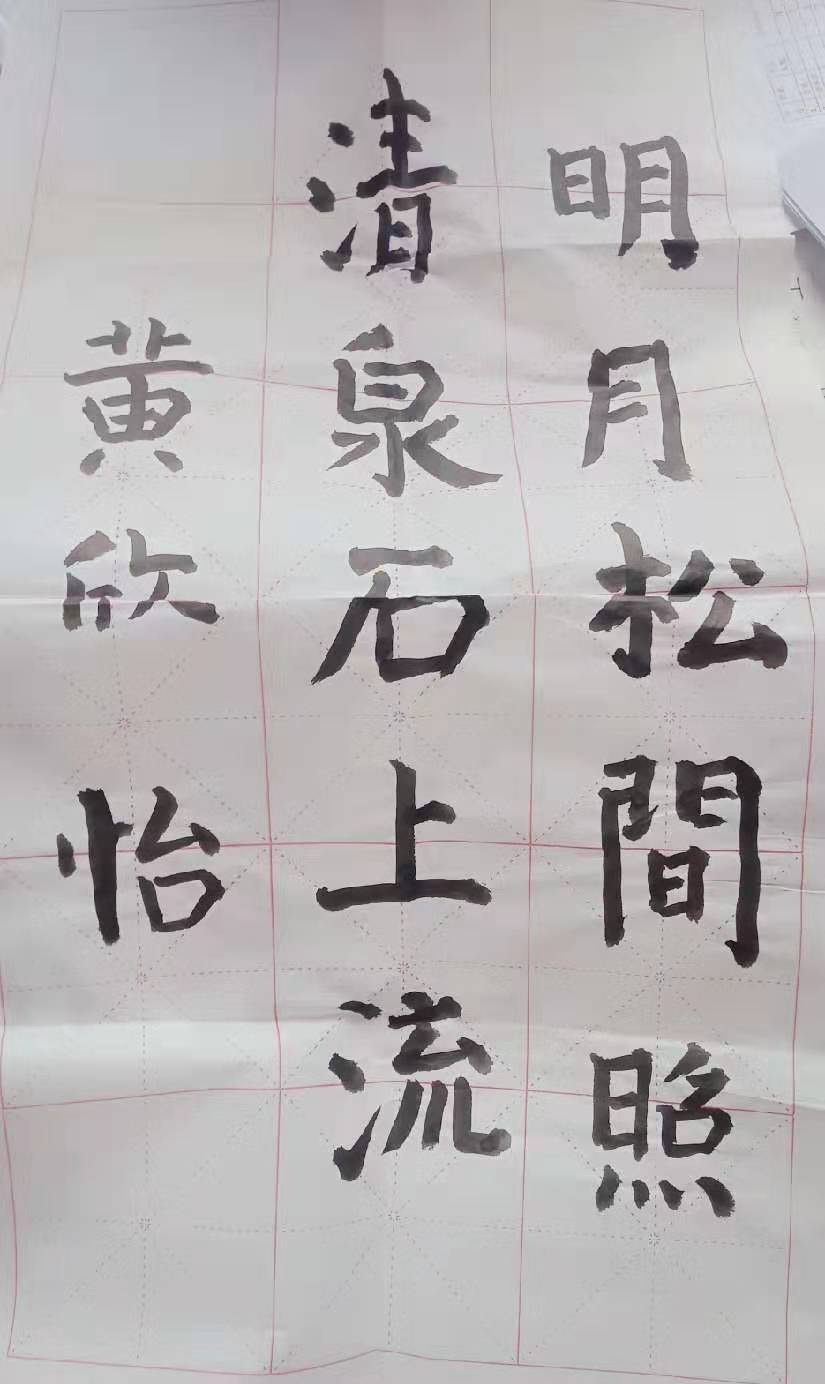 明月松間照
清泉石上流
黄欣怡